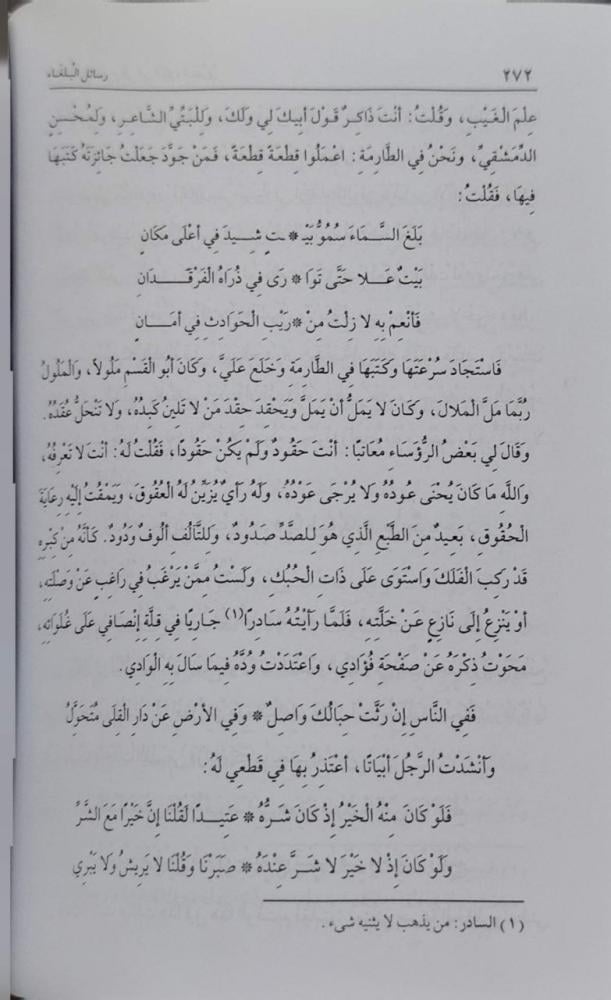 ٢٧٢ رسائل البلغاء
عِلْمَ الْغَيْبِ، وَقُلْتُ: أنْتَ ذَاكِرٌ قَوْلَ أبِيكَ لِي وَلَكَ، وَلِلْبَتِّيِّ الشَّاعِرِ، وَلِمُحْسِنِ
الدِّمَشْقِيِّ، ونَحْنُ فِي الطَّارِمَةِ: اعْمَلُوا قِطْعَةً قِطْعَةً، فَمَنْ جَوَّدَ جَعَلْتُ جَائِزَتَهُ كَتْبَهَا
فِيهَا، فَقُلْتُ:
بَلَغَ السَّمَاءَ سُمُوُّ بَيْـ * ـتٍ شِيدَ فِي أعْلَى مَكَانِ
بَيْتٌ عَلا حَتَّى تَوَا * رَى فِي ذُرَاهُ الْفَرْقَدَانِ
فَأنْعِمْ بِهِ لا زِلْتَ مِنْ * رَيْبِ الْحَوَادِثِ فِي أمَانِ
فَاسْتَجَادَ سُرْعَتَهَا وَكَتَبَهَا فِي الطَّارِمَةِ وَخَلَعَ عَلَيَّ، وَكَانَ أبُو الْقَسْمِ مَلُولاً، وَالْمَلُولُ
رُبَّمَا مَلَّ الْمَلالَ، وَكَانَ لا يَمَلُّ أنْ يَمَلَّ وَيَحْقِدَ حِقْدَ مَنْ لا تَلِينُ كَبِدُهُ، وَلا تَنْحَلُّ عُقَدُهُ.
وَقَالَ لِي بَعْضُ الرُّؤَسَاءِ مُعَاتِبًا: أنْتَ حَقُودٌ وَلَمْ يَكُنْ حَقُودًا، فَقُلْتُ لَهُ: أنْتَ لا تَعْرِفُهُ،
وَاللَّهِ مَا كَانَ يُحْنَى عُودُهُ وَلا يُرْجَى عَوْدُهُ، وَلَهُ رَأيٌ يُزَيِّنُ لَهُ الْعُقُوقَ، وَيَمْقُتُ إلَيْهِ رِعَايَةَ
الْحُقُوقِ، بَعِيدٌ مِنَ الطَّبْعِ الَّذِي هُوَ لِلصَّدِّ صَدُودٌ، وَلِلتَّآلُفِ ألُوفٌ وَدُودٌ. كَأنَّهُ مِنْ كِبْرِهِ
قَدْ رَكِبَ الْفَلَكَ وَاسْتَوَى عَلَى ذَاتِ الْحُبُكِ، وَلَسْتُ مِمَّنْ يَرْغَبُ فِي رَاغِبٍ عَنْ وُصْلَتِهِ،
أوْ يَنْزِعُ إلَى نَازِعٍ عَنْ خَلَّتِهِ، فَلَمَّا رَأيْتُهُ سَادِرًا(١) جَارِيًا فِي قِلَّةِ إنْصَافِي عَلَى غُلَوَائِهِ،
مَحَوْتُ ذِكْرَهُ عَنْ صَفْحَةِ فُؤَادِي، وَاعْتَدَدْتُ وُدَّهُ فِيمَا سَالَ بِهِ الْوَادِي.
فَفِي النَّاسِ إنْ رَثَّتْ حِبَالُكَ وَاصِلٌ * وَفِي الأرْضِ عَنْ دَارِ الْقِلَى مُتَحَوَّلُ
وَأنْشَدْتُ الرَّجُلَ أبْيَاتًا، أعْتَذِرُ بِهَا فِي قَطْعِي لَهُ:
فَلَوْ كَانَ مِنْهُ الْخَيْرُ إذْ كَانَ شَرُّهُ * عَتِيدًا لَقُلْنَا إنَّ خَيْرًا مَعَ الشَّرِّ
وَلَوْ كَانَ إذْ لا خَيْرَ لا شَرَّ عِنْدَهُ * صَبَرْنَا وَقُلْنَا لا يَرِيشُ وَلا يَبْرِي
(١) السادر: من يذهب لا يثنيه شيء.